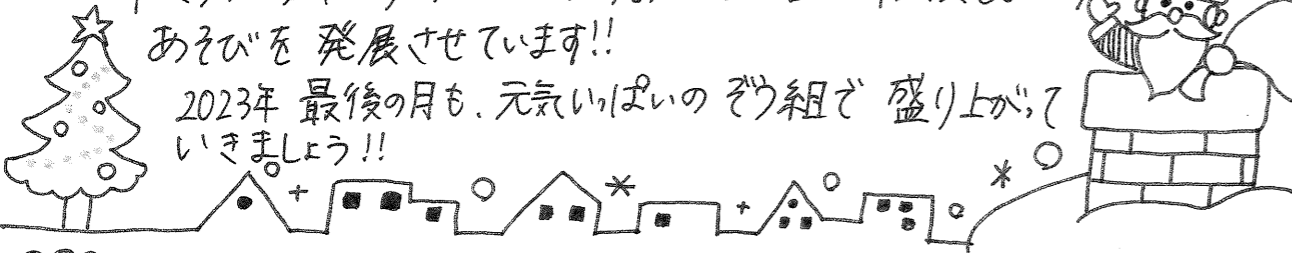 あそびを 発展させています!!
2023年 最後の月も、元気いっぱいの ぞう組で 盛り上がって
いきましょう!!